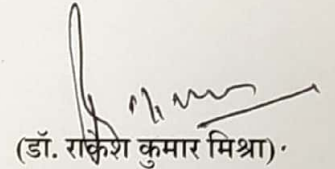 (डॉ. राकेश कुमार मिश्रा)